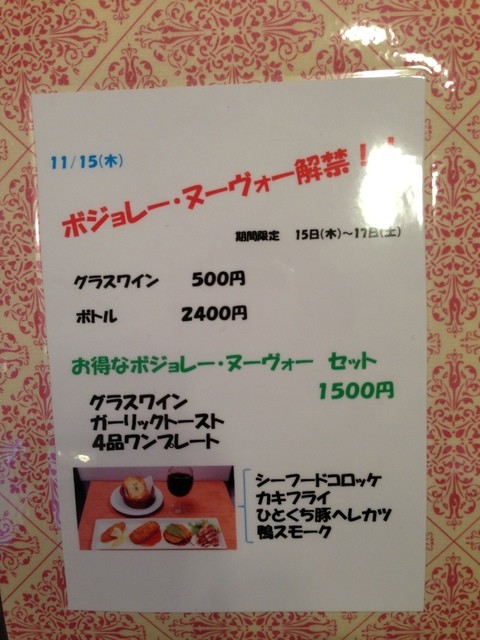 11/15(木)
ボジョレー・ヌーヴォー解禁！！
期間限定 15日(木)～17日(土)
グラスワイン 500円
ボトル 2400円
お得なボジョレー・ヌーヴォー セット
1500円
グラスワイン
ガーリックトースト
4品ワンプレート
シーフードコロッケ
カキフライ
ひとくち豚ヘレカツ
鴨スモーク